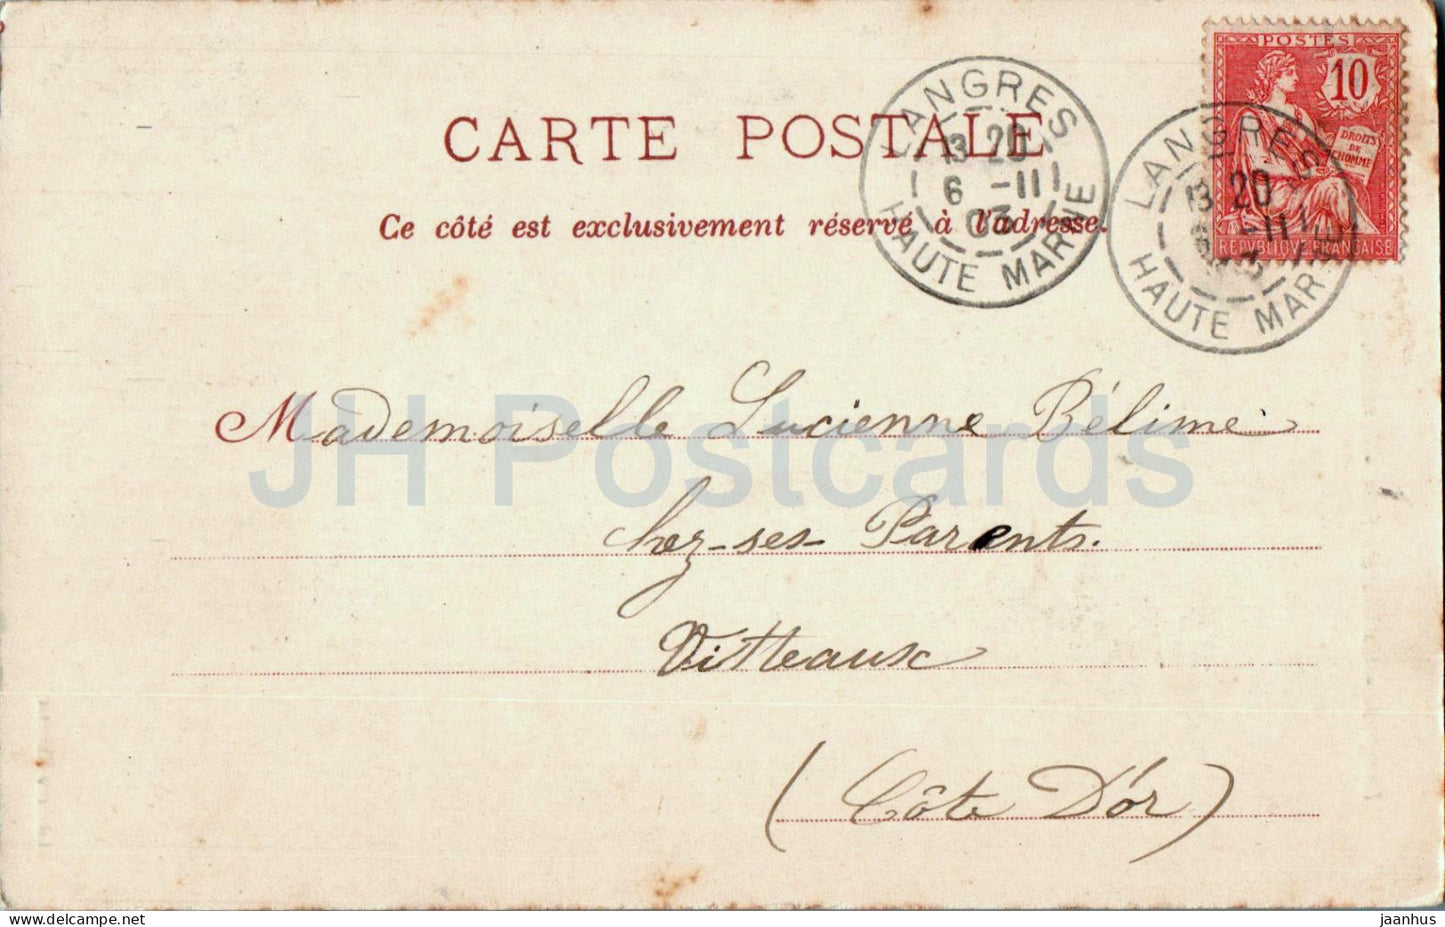 CARTE POSTALE
Ce côté est exclusivement réservé à l'adresse.
LANGRES
13 20
6 -11
03
HAUTE MARNE
POSTES
10
DROITS
DE
L'HOMME
REPUBLIQUE FRANÇAISE
LANGRES
13 20
-11
HAUTE MARNE
Mademoiselle Lucienne Bélime
chez-ses-Parents.
Vitteaux
(Côte D'or)
JH Postcards
jaanhus